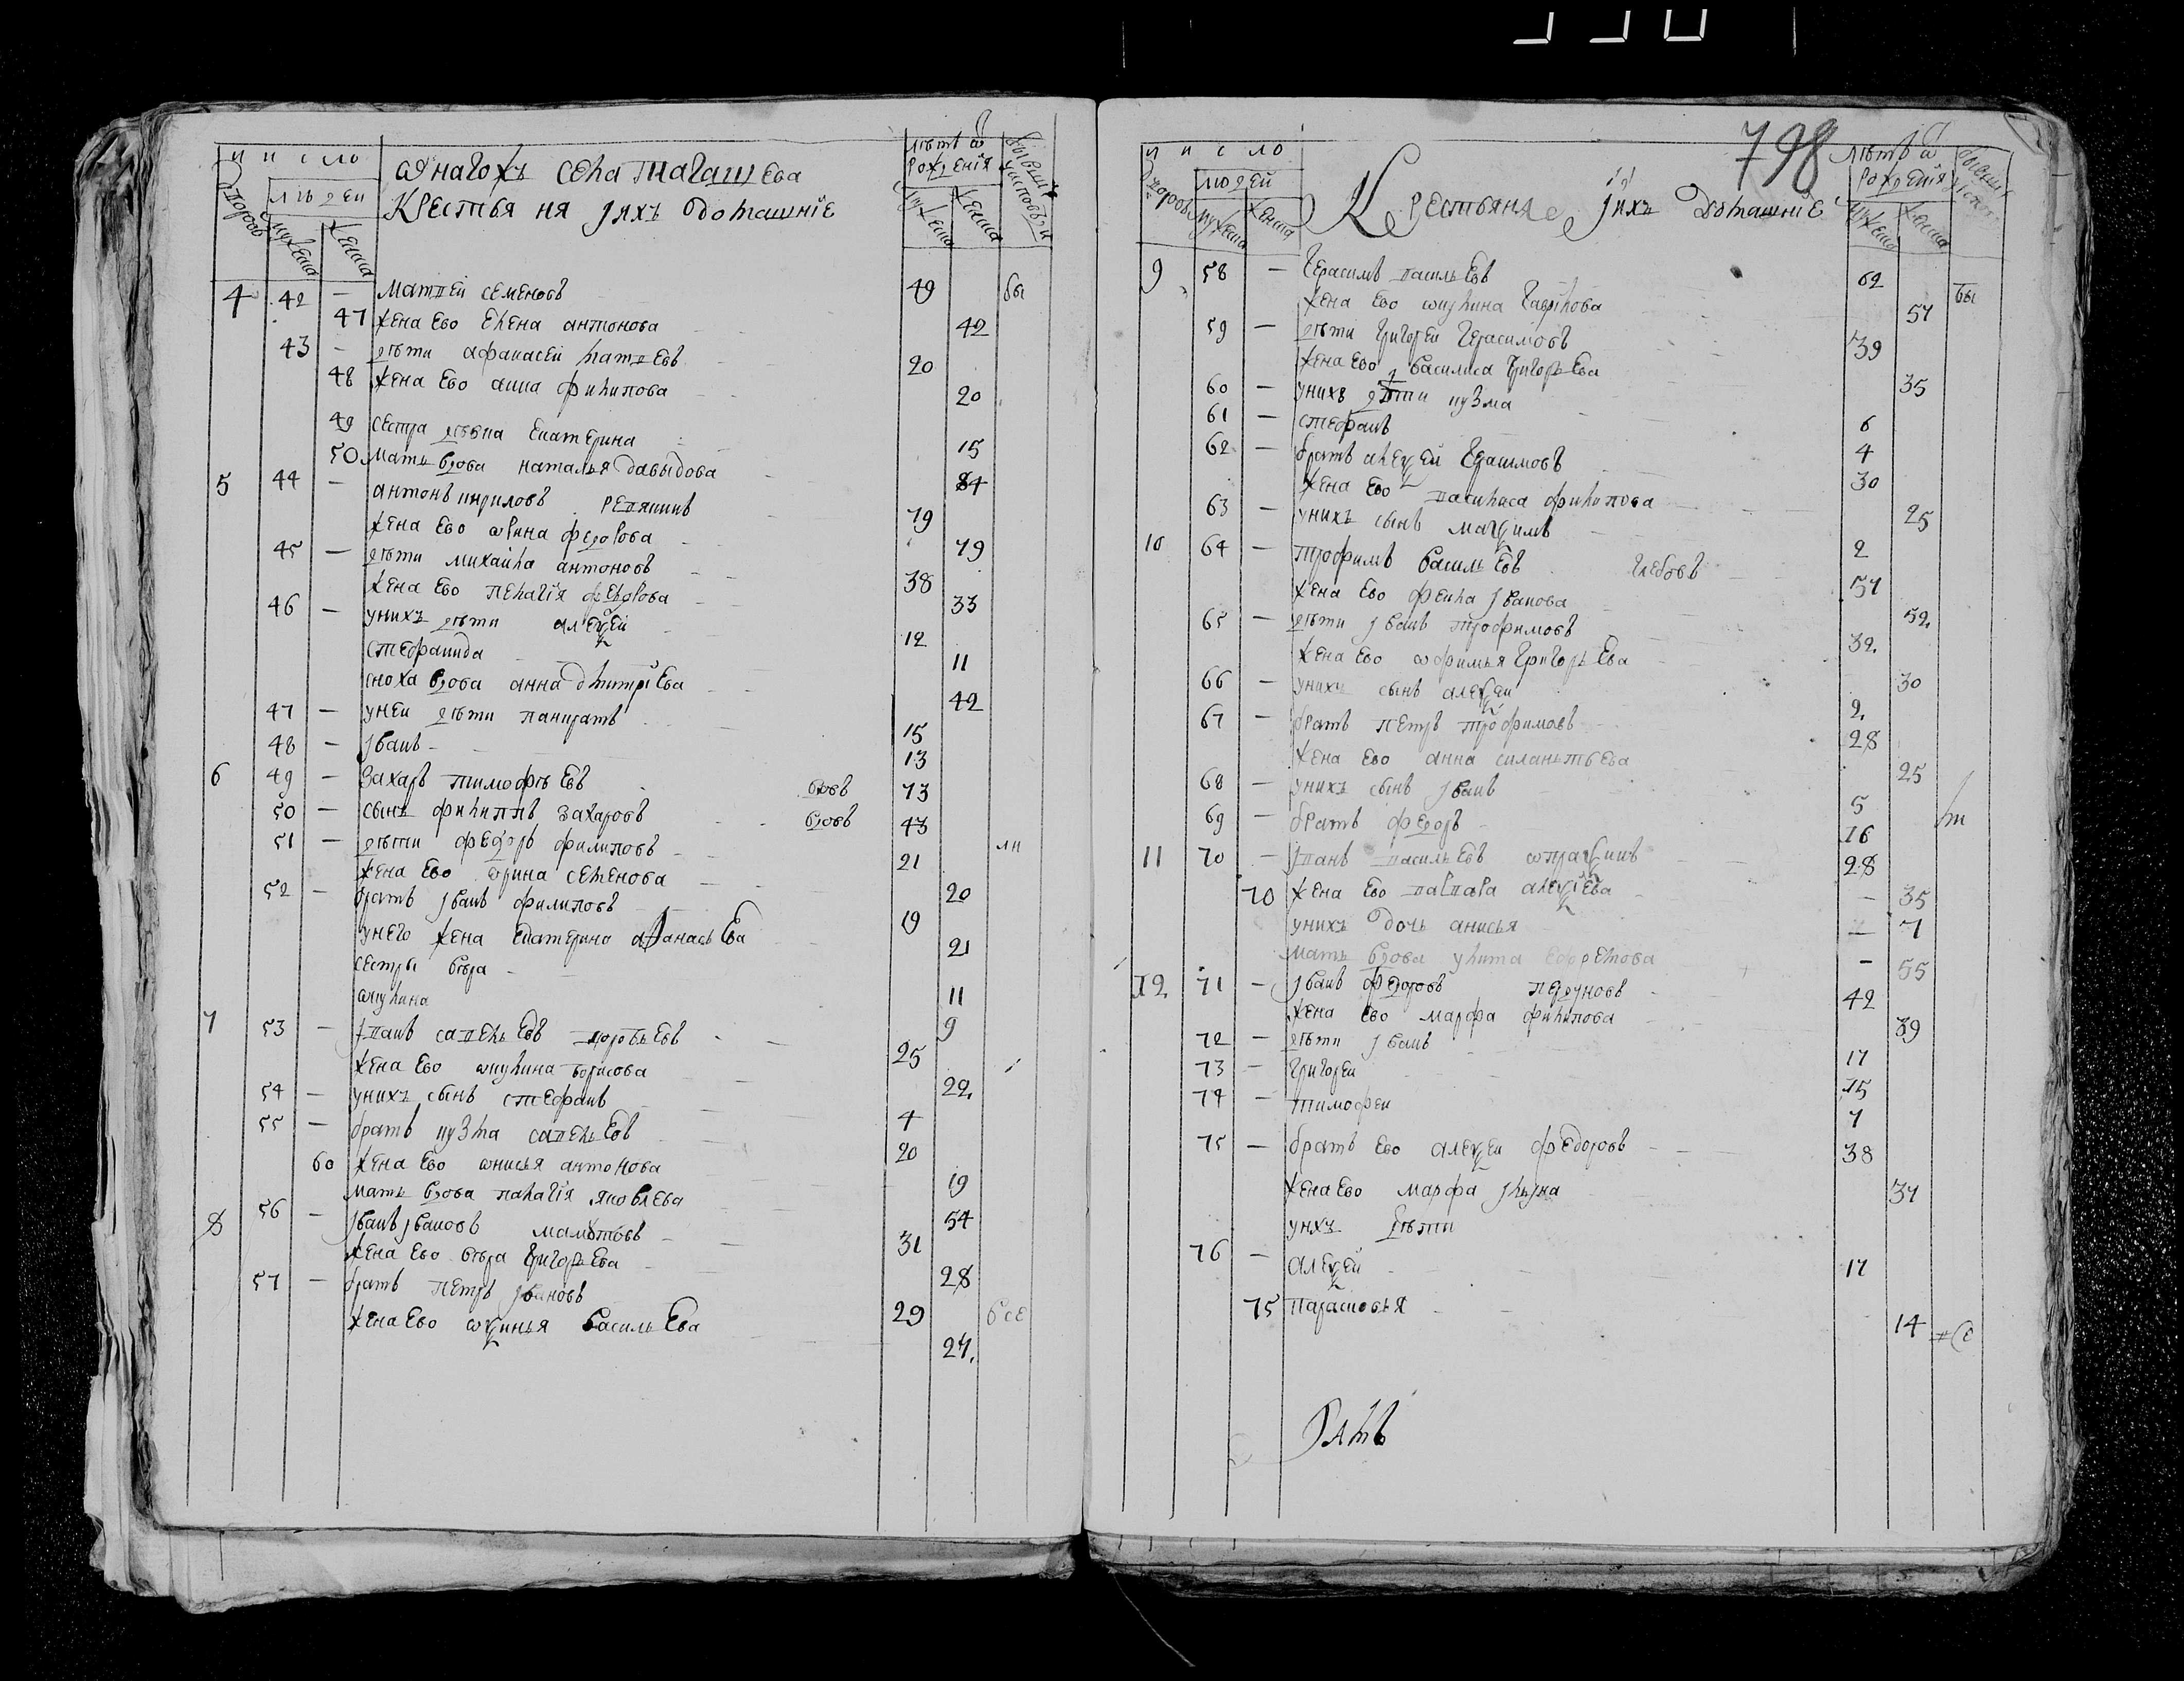 число
дворовъ
людей
мужеска
женска
онагожъ села Тагашева
Крестьяня Iихъ домашнiе
лѣтъ ѿ рожденiя
мужеска
женска
бывшiе
4 42 — Матвей Семеновъ 49 бы
47 жена ево Елена Антонова 42
43 — дѣти Афанасей Матвеевъ 20
48 жена ево Анна Филипова 20
49 сестра девка Екатерина 15
50 мать вдова Наталья Давыдова 84
5 44 — Антонъ Кириловъ 79
жена ево Орина Федорова 79
45 — дѣти Михайла Антоновъ 38
жена ево Пелагiя Федорова 33
46 — унихъ дѣти Алеѯей 12
Стефанида 11
сноха вдова Анна Дмитрiева 42
47 — уней дѣти Панкратъ 15
48 — Iванъ 13
6 49 — Захаръ Тимофѣевъ вдовъ 73
50 — сынъ Филиппъ Захаровъ вдовъ 43
51 — дѣти Федоръ Филиповъ 21
жена ево Орина Семенова 20
52 — братъ Iванъ Филиповъ 19
унего жена Екатерина Афанасьева 21
сестры Вѣра 11
Акулина 9
7 53 — Iванъ Савельевъ Воробьевъ 25
жена ево Акулина Борисова 22.
54 — унихъ сынъ Стефанъ 4
55 — братъ Кузма Савельевъ 20
60 жена ево Онисья Антонова 19
мать вдова Палагiя Яковлева 54
8 56 — Iванъ Iвановъ 31
жена ево Вѣра Григорьева 28
57 — братъ Петръ Iвановъ 29 все
жена ево Оѯинья Васильева 27.
798
число
дворовъ
людей
мужеска
женска
Крестьяня Iихъ домашнiе
лѣтъ ѿ рожденiя
мужеска
женска
9 58 — Герасимъ Васильевъ 62 бы
жена ево Акулина Гаврiлова 57
59 — дѣти Григорей Герасимовъ 39
жена ево Василиса Григорьева 35
60 — унихъ дѣти Кузма 6
61 — Стефанъ 4
62 — братъ Алеѯей Герасимовъ 30
жена ево Василиса Филипова 25
63 — унихъ сынъ Маѯимъ 2
10 64 — Трофимъ Васильевъ Глебовъ 57
жена ево Фекла Iванова 52.
65 — дѣти Iванъ Трофимовъ 32.
жена ево Офимья Григорьева 30
66 — унихъ сынъ Алеѯей 2.
67 — братъ Петръ Трофимовъ 28
жена ево Анна Силантьева 25
68 — унихъ сынъ Iванъ 5
69 — братъ Федоръ 16
11 70 — Iванъ Васильевъ 28
70 жена ево Варвара Алеѯiева — 35
унихъ дочь Анисья — 7
мать вдова Улита Ефремова — 55
12. 71 — Iванъ Федоровъ 42
жена ево Марфа Филипова 39
72 — дѣти Iванъ 17
73 — Григорей 15
74 — Тимофей 7
75 — братъ ево Алеѯей Федоровъ 38
жена ево Марфа Iльина 37
унихъ дѣти
76 — Алеѯей 17
75 Парасковья 14 все